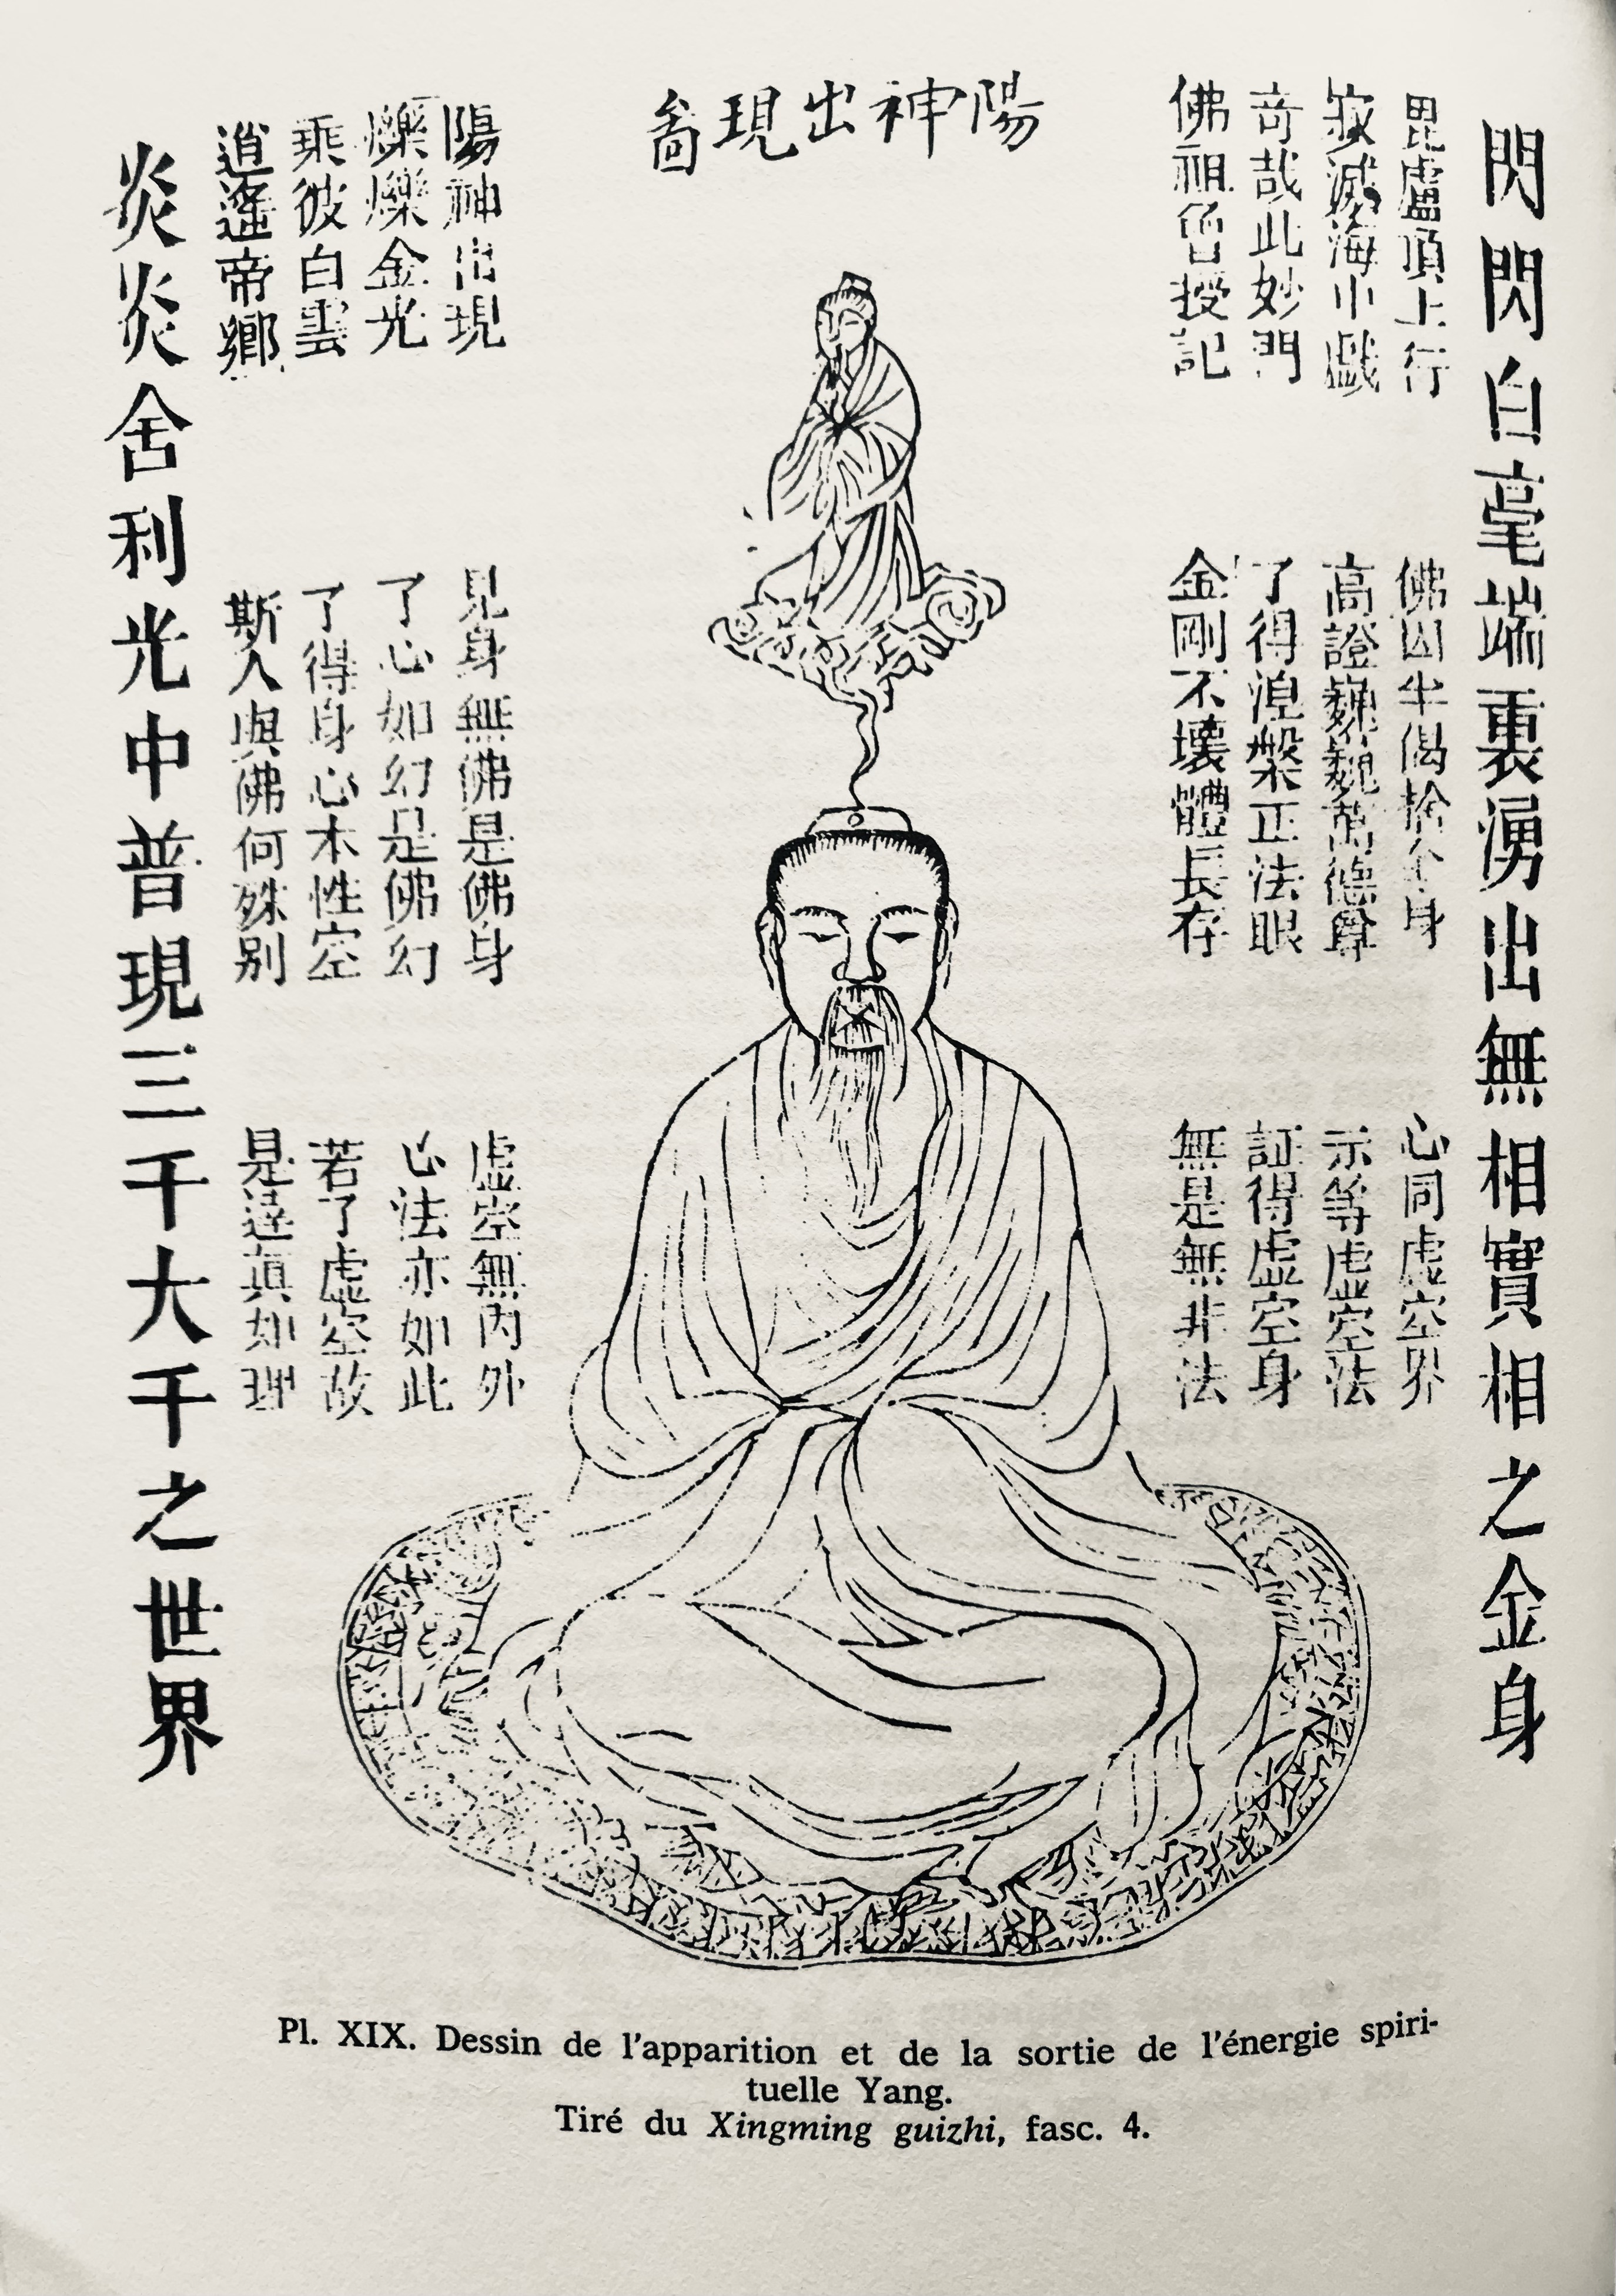 陽神出現啚
閃閃白毫端裏湧出無相實相之金身
毘盧頂上行
寂滅海小戲
奇哉此妙門
佛祖曾授記
佛因半偈捨全身
高證巍巍萬德尊
了得涅槃正法眼
金剛不壞體長存
心同虛空界
示等虛空法
証得虛空身
無是無非法
陽神出現
爍爍金光
乘彼白雲
逍遙帝鄉
見身無佛是佛身
了心如幻是佛幻
了得身心本性空
斯人與佛何殊別
虛空無內外
心法亦如此
若了虛空故
是達真如理
炎炎舍利光中普現三千大千之世界
Pl. XIX. Dessin de l'apparition et de la sortie de l'énergie spiri-
tuelle Yang.
Tiré du Xingming guizhi, fasc. 4.